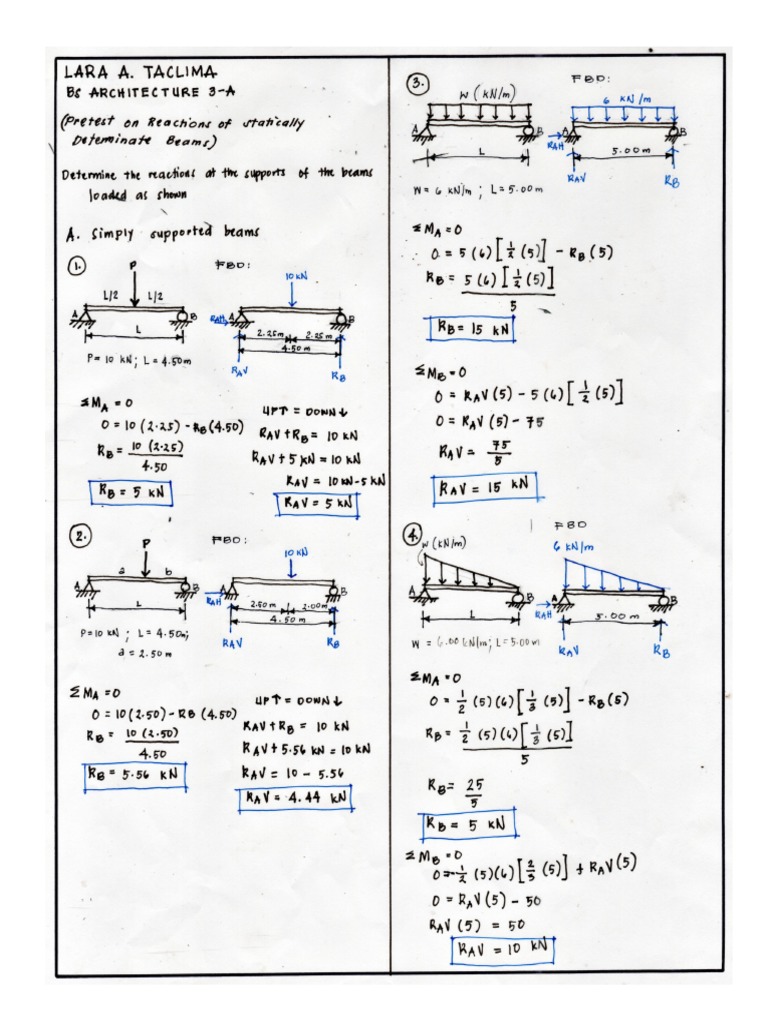 LARA A. TACLIMA
BS ARCHITECTURE 3-A
(Pretest on Reactions of statically
Determinate Beams)
Determine the reactions at the supports of the beams
loaded as shown
A. Simply supported beams
1.
FBD:
P
10 KN
L/2 L/2
A
B
L
RAH
A
B
2.25m 2.25m
4.50m
RAV
RB
P= 10 KN ; L= 4.50m
ΣMA = 0
0 = 10 (2.25) - RB (4.50)
RB = 10 (2.25)
4.50
RB = 5 KN
UP↑ = DOWN↓
RAV + RB = 10 KN
RAV + 5 KN = 10 KN
RAV = 10KN-5 KN
RAV = 5 KN
2.
FBD:
P
10 KN
a b
A
B
L
RAH
A
B
2.50m 2.00m
4.50 m
RAV
RB
P=10 KN ; L= 4.50m;
a = 2.50 m
ΣMA = 0
0 = 10(2.50) - RB (4.50)
RB = 10 (2.50)
4.50
RB = 5.56 KN
UP↑ = DOWN↓
RAV + RB = 10 KN
RAV + 5.56 KN = 10 KN
RAV = 10 - 5.56
RAV = 4.44 KN
3.
FBD:
W (KN/m)
6 KN/m
A
B
L
RAH
A
B
5.00m
RAV
RB
W= 6 KN/m ; L= 5.00m
ΣMA = 0
0 = 5 (6) [1/2 (5)] - RB (5)
RB = 5 (6) [1/2 (5)]
5
RB = 15 KN
ΣMB = 0
0 = RAV (5) - 5 (6) [1/2 (5)]
0 = RAV (5) - 75
RAV = 75
5
RAV = 15 KN
4.
FBD
W (KN/m)
6 KN/m
A
B
L
RAH
A
B
5.00m
RAV
RB
W = 6.00 KN/m; L= 5.00m
ΣMA = 0
0 = 1/2 (5)(6) [1/3 (5)] - RB (5)
RB = 1/2 (5)(6) [1/3 (5)]
5
RB = 25
5
RB = 5 KN
ΣMB = 0
0 = -1/2 (5)(6) [2/3 (5)] + RAV (5)
0 = RAV (5) - 50
RAV (5) = 50
RAV = 10 KN